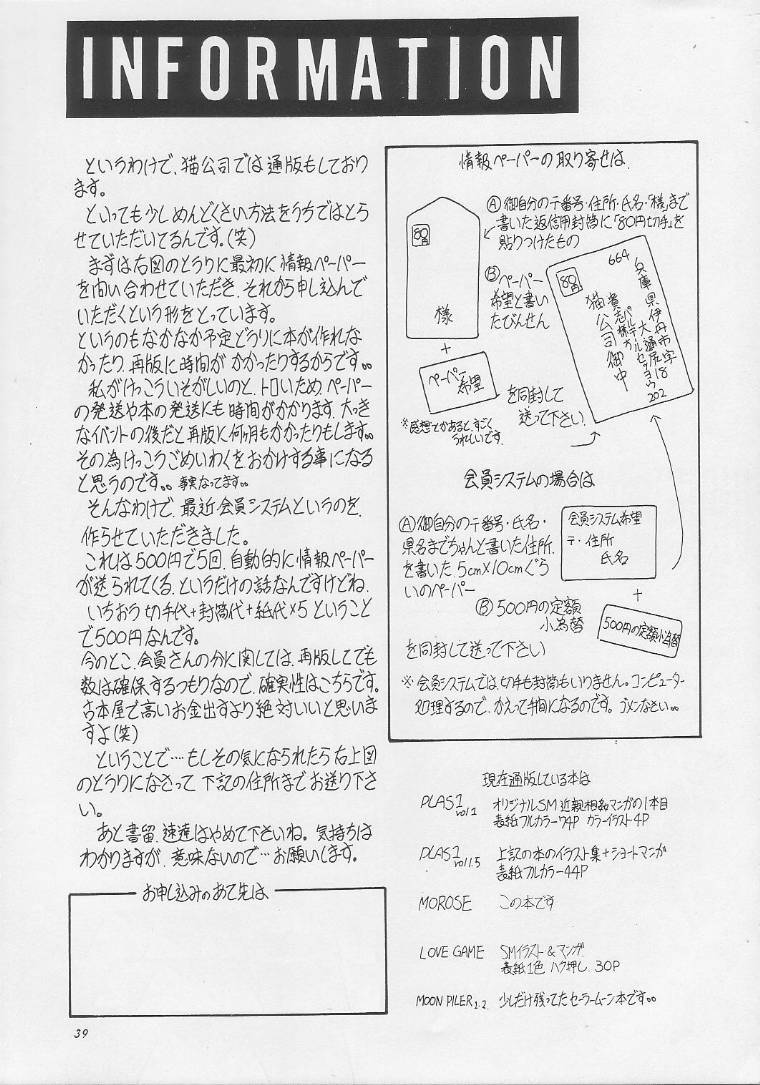 INFORMATION
というわけで、猫公司では通販もしており
ます。
といっても少しめんどくさい方法をうちではとら
せていただいてるんです。(笑)
まずは右図のとうりに最初に情報ペーパー
を問い合わせていただき、それから申し込んで
いただくという形をとっています。
というのもなかなか予定どうりに本が作れな
かったり、再版に時間がかかったりするからです。。
私がけっこういそがしいのと、トロいため、ペーパー
の発送や本の発送にも時間がかかります。大っき
なイベントの後だと再版に何ヶ月もかかったりもします。。
その為けっこうごめいわくをおかけする事になる
と思うのです。。事実なってます。。
そんなわけで、最近会員システムというのを、
作らせていただきました。
これは500円で5回、自動的に情報ペーパー
が送られてくる、というだけの話なんですけどね、
いちおう切手代+封筒代+紙代×5ということ
で500円なんです。
今のとこ、会員さんの分に関しては、再版してでも
数は確保するつもりなので、確実性はこちらです。
古本屋で高いお金出すより絶対いいと思いま
すよ(笑)
ということで‥‥もしその気になられたら右上図
のとうりになさって下記の住所までお送り下さ
い。
あと書留、速達はやめて下さいね。気持ちは
わかりますが、意味ないので…お願いします。
お申し込みのあて先は
39
情報ペーパーの取り寄せは、
Ⓐ御自分の〒番号・住所・氏名・「様」まで
書いた返信用封筒に「80円切手」を
貼りつけたもの
80
様
+
ペーパー
希望
Ⓑペーパー
希望と書い
たびんせん
を同封して
送って下さい
※感想とかあると、すごく
うれしいです。
80
664
兵庫県伊丹市
202
猫公司御中
会員システムの場合は
Ⓐ御自分の〒番号・氏名・
県名までちゃんと書いた住所、
を書いた、5cm×10cmぐら
いのペーパー
会員システム希望
〒・住所
氏名
+
Ⓑ500円の定額
小為替
500円の定額小為替
を同封して送って下さい
※会員システムでは、切手も封筒もいりません。コンピューター
処理するので、かえって手間になるのです。ゴメンなさい。。
現在通販している本は
PLAS1 vol.1 オリジナルSM近親相姦マンガの1本目
表紙フルカラー74P カラーイラスト4P
PLAS1 vol1.5 上記の本のイラスト集+ショートマンガ
表紙フルカラー44P
MOROSE この本です
LOVE GAME SMイラスト&マンガ
表紙1色 ハク押し 30P
MOON PILER 1.2 少しだけ残ってたセーラームーン本です。。